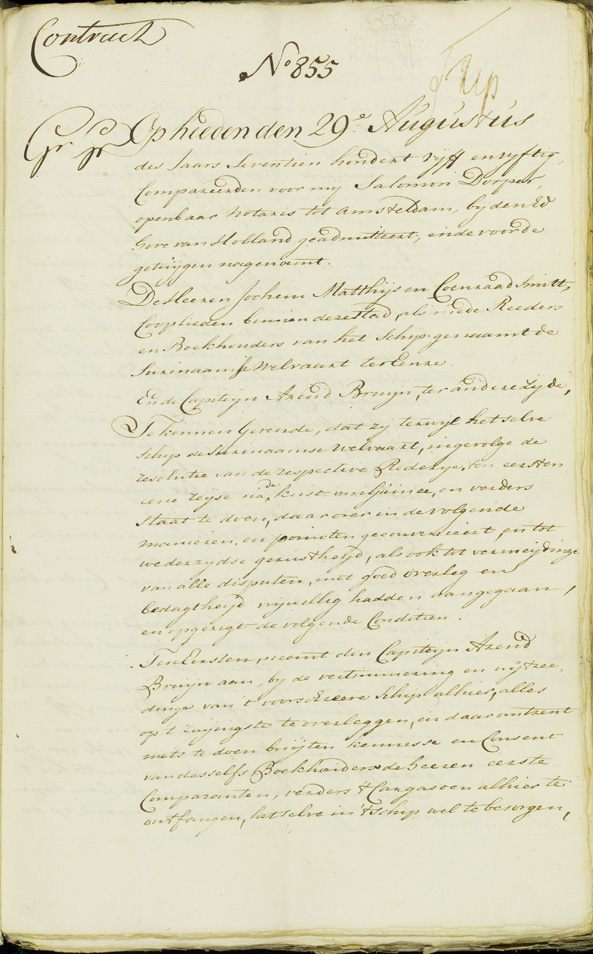 Contract
No 855
Trip
Gr gr Op heeden den 29e Augustus
des Jaars Seventien hondert vyff en vyftig,
Compareerden voor mij Salomon Dorper,
openbaar Notaris tot Amsteldam, by den Ed
Hove van Holland geadmitteert, in de voor de
getuijgen nagenoemt.
De Heeren Jochem Matthijs en Coenraad Smitt,
Cooplieden binnen deze stad, als mede Reeders
en Boekhouders van het Schip genaamt de
Surinaamse Welvaart ter Eenre
En de Capiteyn Arend Bruyn, ter andere zijde,
Te kennen Gevende, dat zij terwijl het selve
Schip de Surinaamse Welvaart, ingevolge de
resolutie van de respective Rederye, ten eersten
eene reyse na de kust van Guinea, en verders
Staat te doen, daar over in de volgende
manieren, en poincten geconvenieert, en tot
wederzydse gerustheyd, als ook tot vermeydinge
van alle disputen, met goed overleg en
bedagtheyd vrywillig hadden aangegaan,
en opgeregt de volgende Conditien.
Ten Eersten, neemt den Capiteyn Arend
Bruyn aan, by de vertimmering en uytree
dinge van 't voorschreere Schip alhier, alles
op 't zuynigste te overleggen, en daar omtrent
niets te doen buyten kennisse en Consent
van desselfs Boekhouders de heeren eerste
Comparanten, verders 't Cargasoen alhier te
ontfangen, het selve in 't Schip wel te besorgen,